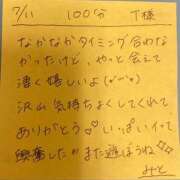 7/11 100分 T様
なかなかタイミング合わな
かったけど、やっと会えて
凄く嬉しいよ(*'ω'*)
沢山気持ちよくしてくれて
ありがとう♡いっぱいイって
興奮したよまた遊ぼうね♡♡
みと